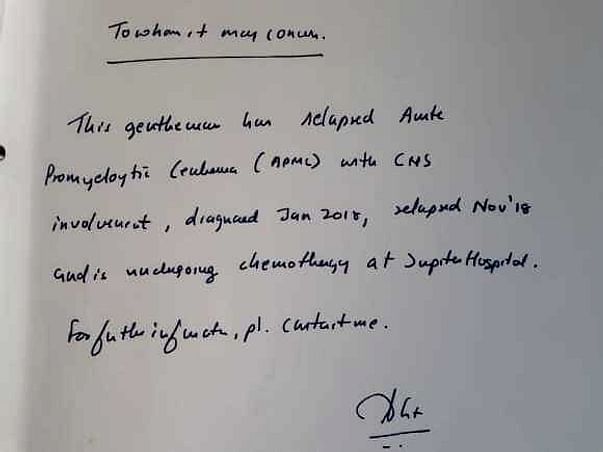 To whom it may concern.
This gentleman has relapsed Acute
Promyelocytic Leukemia (APML) with CNS
involvement, diagnosed Jan 2018, relapsed Nov'18
and is undergoing chemotherapy at Jupiter Hospital.
For further information, pl. contact me.